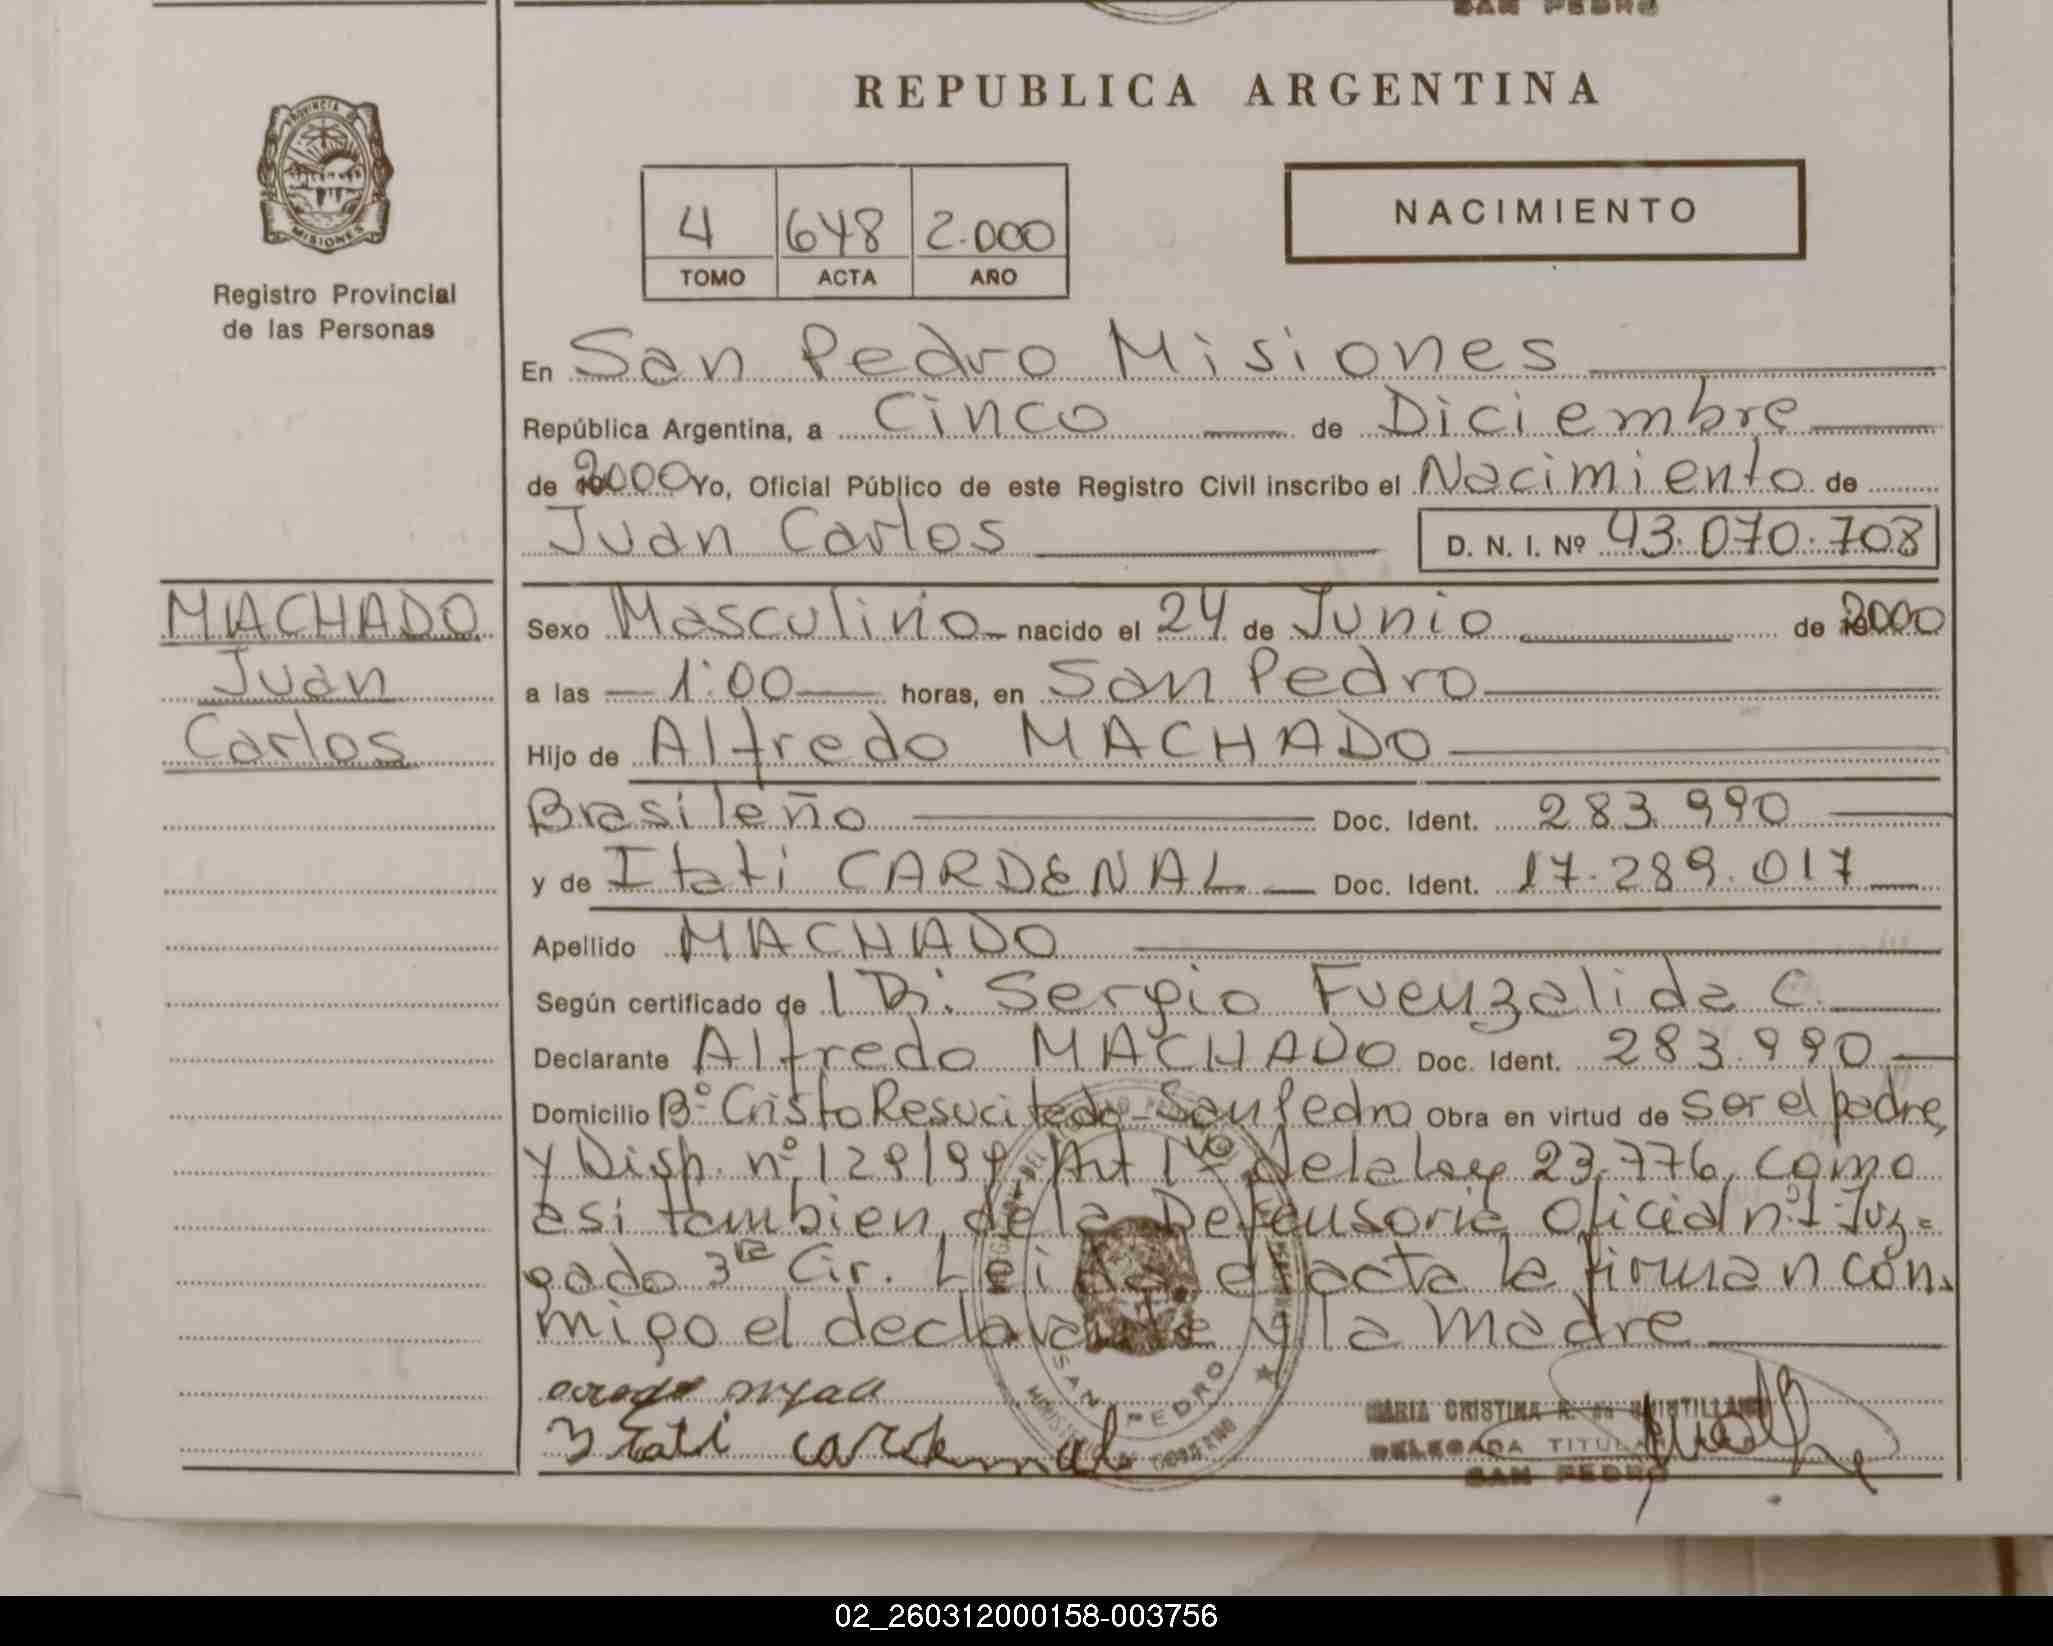 SAN PEDRO
REPUBLICA ARGENTINA
PROVINCIA DE
MISIONES
Registro Provincial
de las Personas
4 648 2.000
TOMO ACTA AÑO
NACIMIENTO
En San Pedro Misiones
República Argentina, a Cinco de Diciembre
de 2000 Yo, Oficial Público de este Registro Civil inscribo el Nacimiento de
Juan Carlos D. N. I. Nº 43.070.708
MACHADO
Juan
Carlos
Sexo Masculino nacido el 24 de Junio de 2000
a las 1:00 horas, en San Pedro
Hijo de Alfredo MACHADO
Brasileño Doc. Ident. 283.990
y de Itati CARDENAL Doc. Ident. 17.289.017
Apellido MACHADO
Según certificado de l Dr. Sergio Fuenzalida C.
Declarante Alfredo MACHADO Doc. Ident. 283.990
Domicilio Bº Cristo Resucitado - San Pedro Obra en virtud de ser el padre,
y Disp. nº 129/99 Art 1º de la ley 23.776, como
asi tambien de la Defensoria Oficial nº 1 Juz=
gado 3ra Cir. Leida el acta la firman con-
migo el declarante y la madre
Itati cardenal
SAN PEDRO
MINISTERIO DE GOBIERNO
MARIA CRISTINA R. de QUINTILLAN
DELEGADA TITULAR
SAN PEDRO
02_260312000158-003756